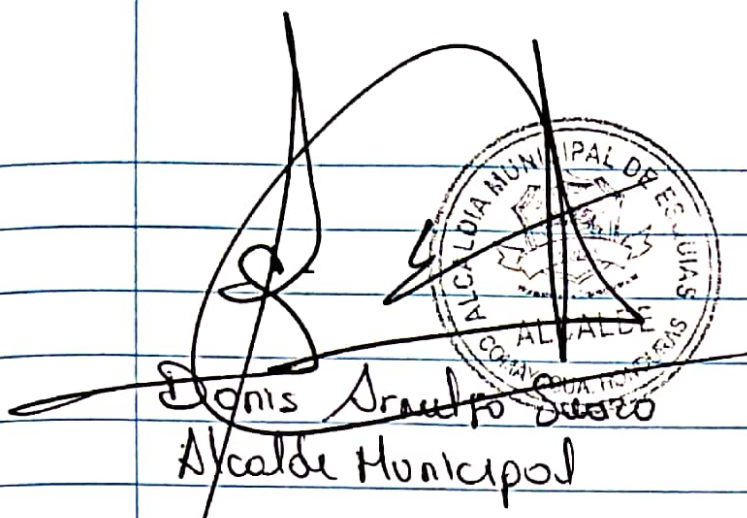 ALCALDIA MUNICIPAL DE ESQUIAS
ALCALDE
COMAYAGUA, HONDURAS
Donis
Alcalde Municipal